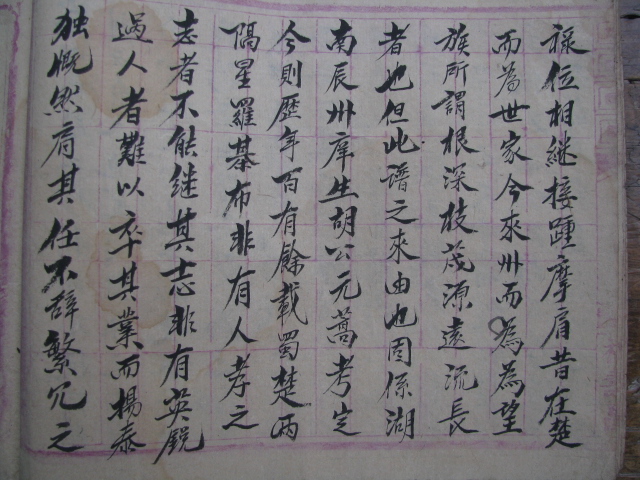 祿位相継接踵摩肩昔在楚
而為世家今來州而為為望
族所謂根深枝茂源遠流長
者也但此譜之來由也固係湖
南辰州庠生胡公元蒿考定
今則歷年百有餘載蜀楚兩
隔星羅基布非有人孝之
志者不能継其志非有英銳
過人者難以卒其業而楊泰
独慨然肩其任不辞繁冗之